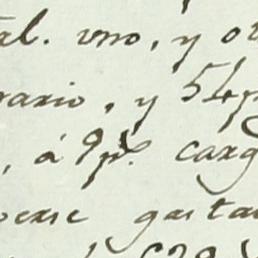 al. vno, y ot
ario, y 54p
, á 9ps. carg
erse gasta